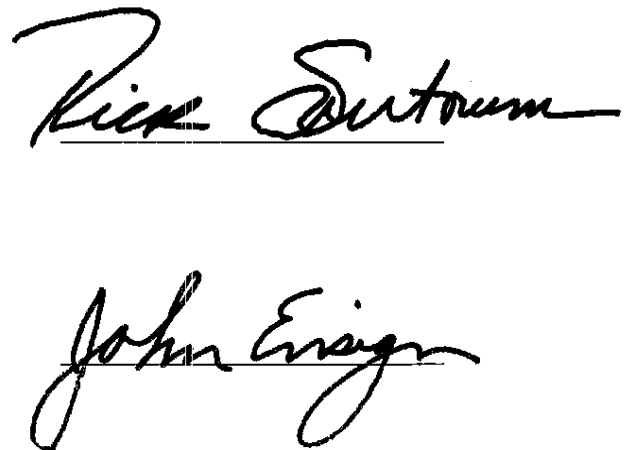 Rick Santorum
John Ensign